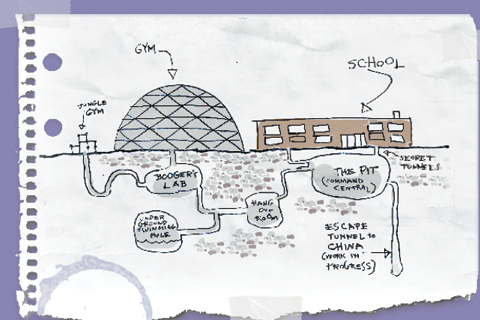 GYM
SCHOOL
JUNGLE
GYM
SECRET
TUNNELS
BOOGER'S
LAB
THE PIT
(COMMAND
CENTRAL)
HANG
OUT
ROOM
UNDER
GROUND
SWIMMING
HOLE
ESCAPE
TUNNEL TO
CHINA
(WORK IN
PROGRESS)